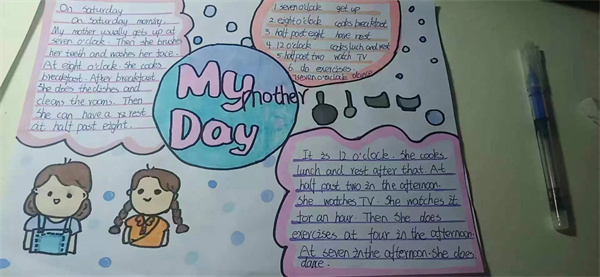 On Saturday
On saturday monday.
My mother usually gets up at
seven o'clock. Then she brushes
her teeth and washes her face.
At eight o'clock she cooks
breakfast. After breakfast.
She does the dishes and
cleans the rooms. Then
She can have a rest
at half past eight.
1 seven o'clock get up
2 eight o'clock cooks breakfast
3 half past eight have rest
4 12 o'clock cooks luch and rest
5 half past two watch TV
6. do exercises.
7seven o'clock dance
My
mother
Day
It is 12 o'clock. She cooks
lunch and rest after that. At
half past two in the afternoon.
She watches TV. She watches it
for an hour. Then She does
exercises at four in the afternoon.
At seven in the afternoon. She does
dance.